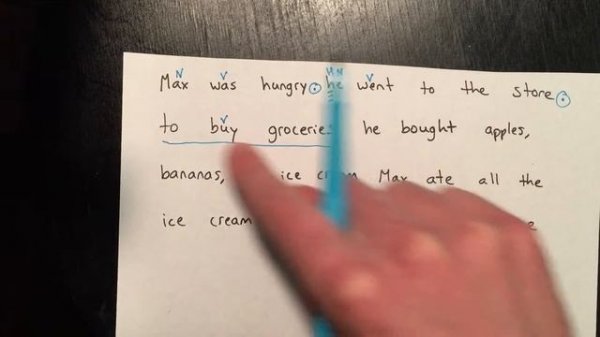 N V N V
Max was hungry. he went to the store.
V
to buy groceries he bought apples,
bananas, ice cream Max ate all the
ice cream